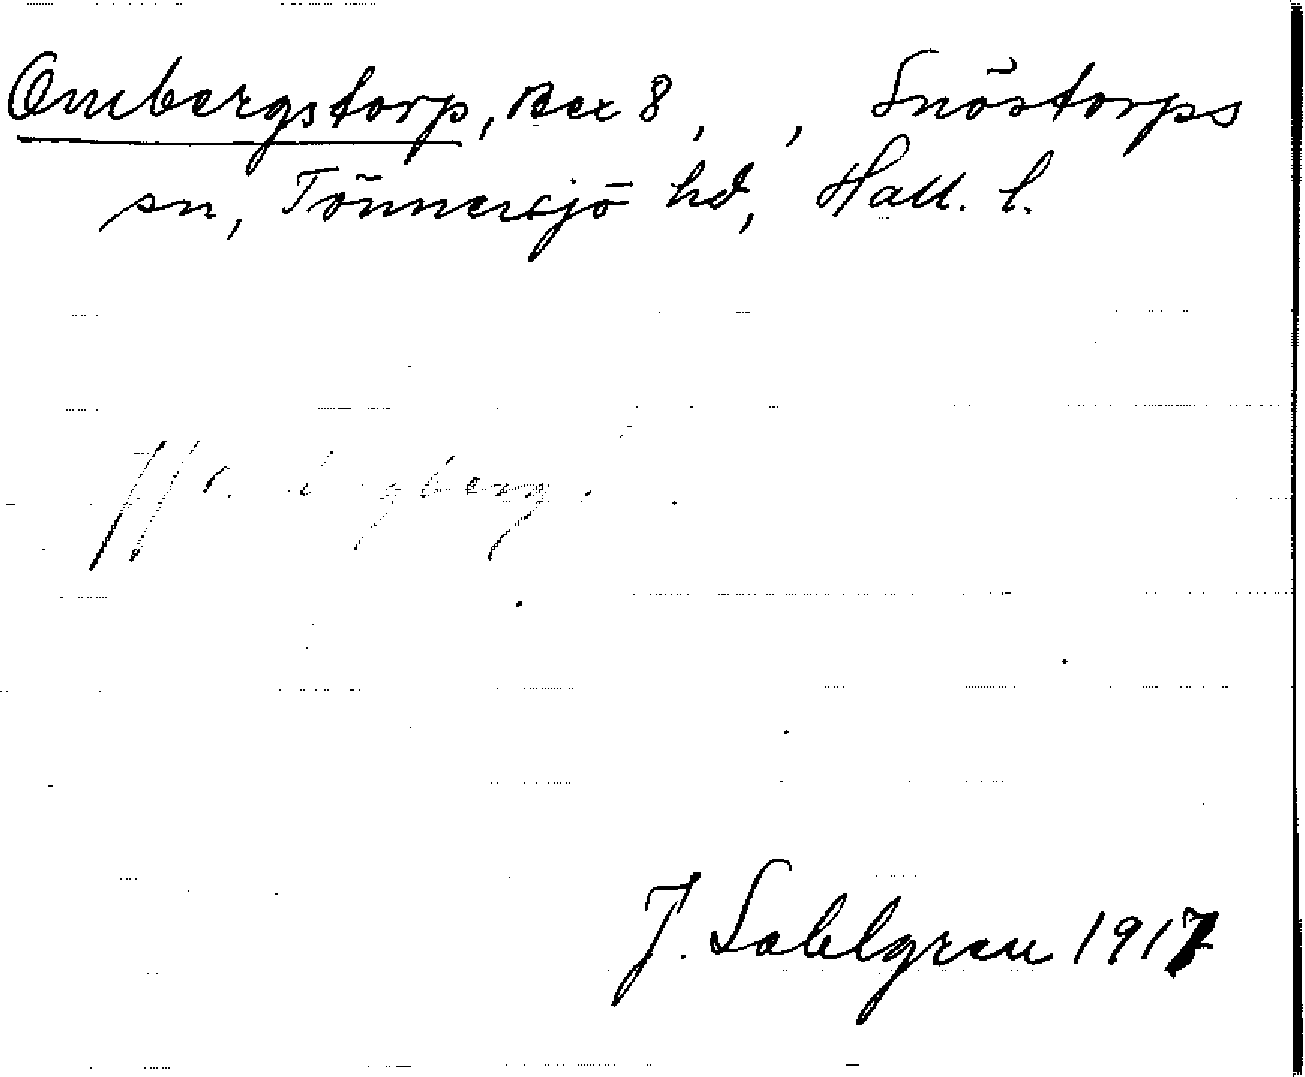 Ombergstorp, Bex 8, , Snöstorps
sn, Tönnersjö hd, Hall. l.
J. Sahlgren 1917